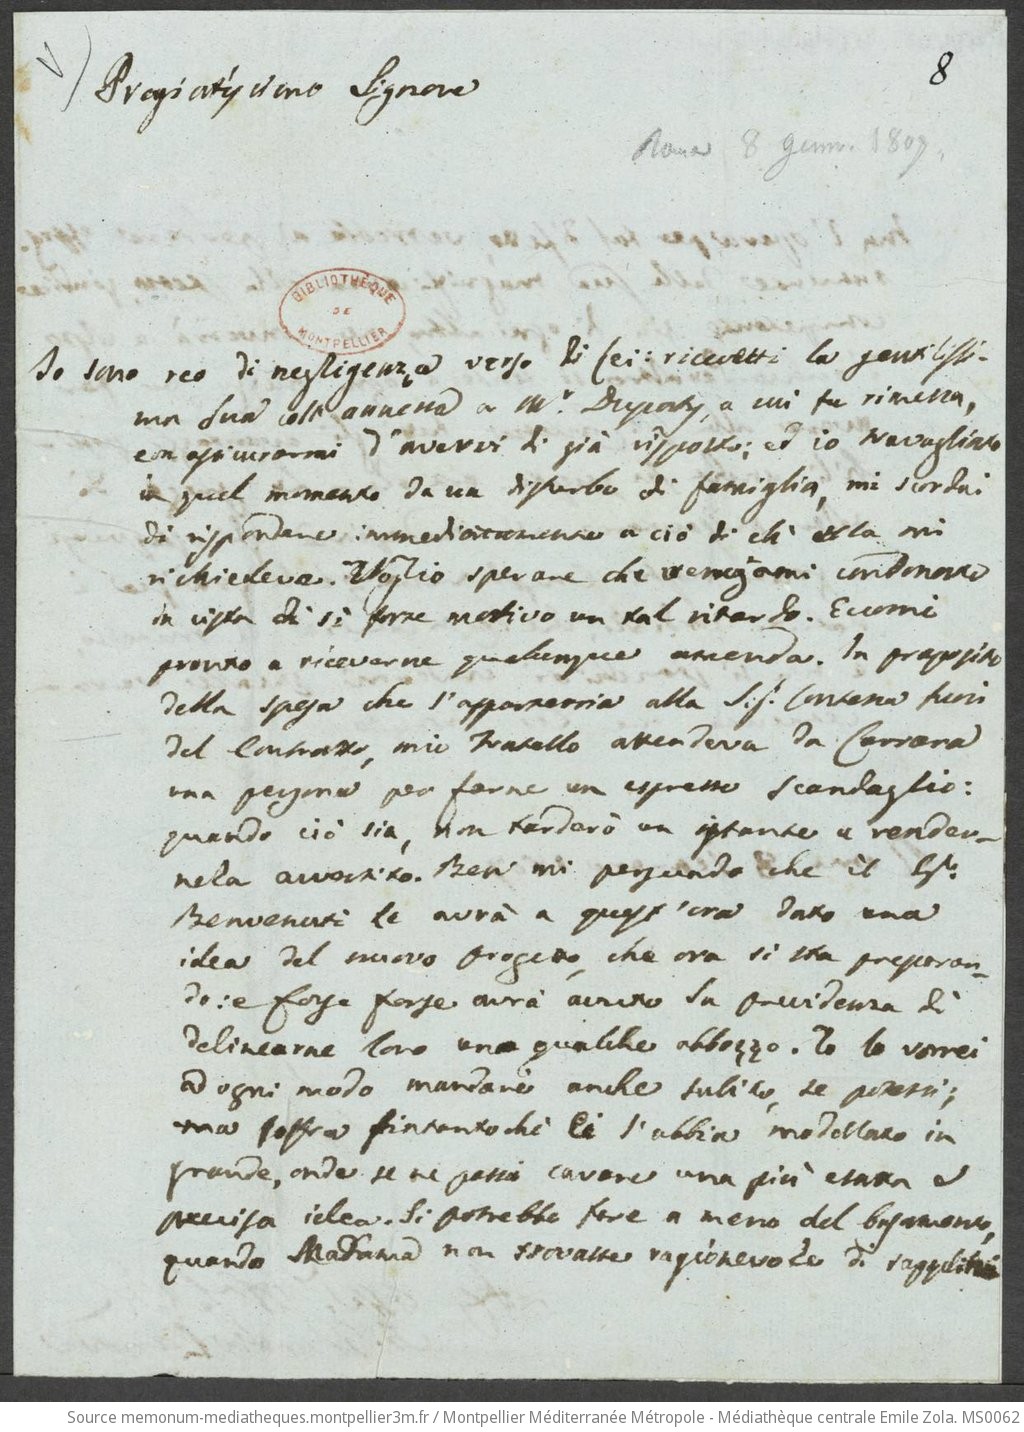 8
Pregiatissimo Signore
Roma 8 Genn. 1807.
BIBLIOTHÈQUE
DE
MONTPELLIER
Io sono reo di negligenza verso di Lei: ricevetti la gentilissi-
ma sua coll'annessa a Mr. a cui fu rimessa,
con assicurarmi d'avervi di già risposto; ed io travagliato
in quel momento da un disturbo di famiglia, mi scordai
di rispondere immediatamente a ciò di ch'ella mi
richiedeva. Voglio sperare che vengami condonato
in vista di sì forte motivo un tal ritardo. Eccomi
pronto a riceverne qualunque amenda. In proposito
della spesa che s'apparterria alla Sig. Contessa fuori
del Contratto, mio Fratello attendeva da Carrara
una persona per farne un espresso scandaglio:
quando ciò sia, non tarderò un istante a render-
nela avvertito. Ben mi persuado che il Sr.
Benvenuti le avrà a quest'ora dato una
idea del nuovo progetto, che ora si sta preparan-
do: e forse forse avrà avuto la previdenza di
delinearne loro una qualche abbozzo. Io lo vorrei
ad ogni modo mandare anche subito, se potessi;
ma soffra fintantochè l'abbia modellato in
grande, onde se ne possa cavare una più esatta e
precisa idea. Si potrebbe fare a meno del basamento,
quando Madama non trovasse ragionevole di
Source memonum-mediatheques.montpellier3m.fr / Montpellier Méditerranée Métropole - Médiathèque centrale Emile Zola. MS0062